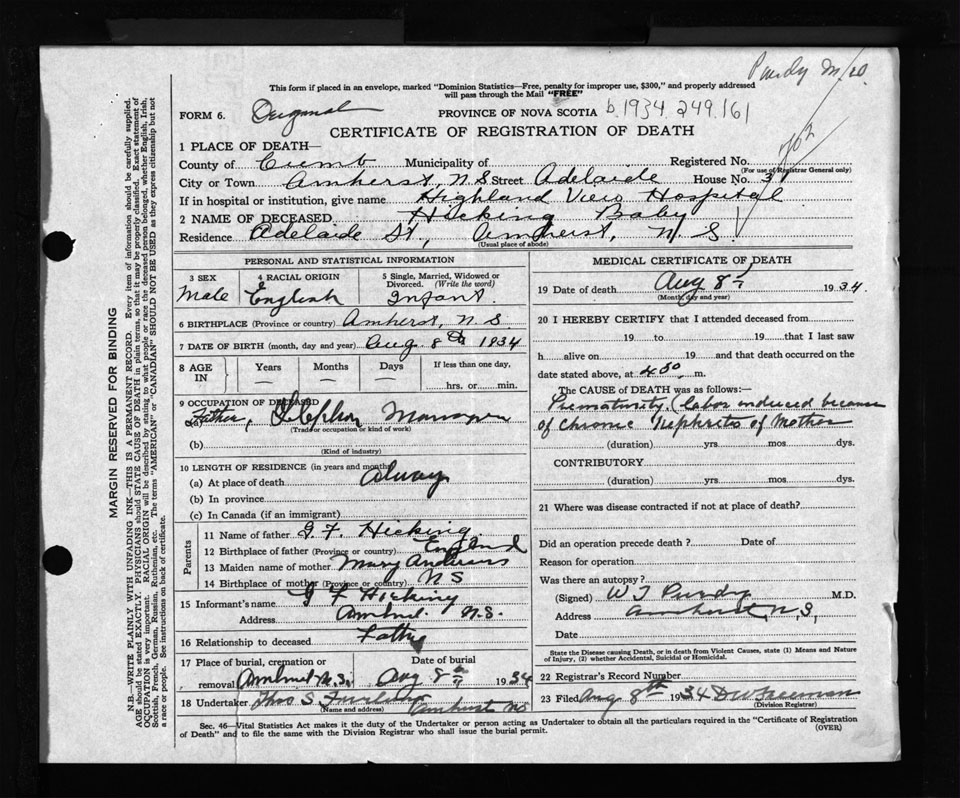 Purdy M/20
This form if placed in an envelope, marked "Dominion Statistics—Free, penalty for improper use, $300," and properly addressed
will pass through the Mail "FREE"
FORM 6. Original PROVINCE OF NOVA SCOTIA b.1934 249.161
CERTIFICATE OF REGISTRATION OF DEATH
1 PLACE OF DEATH—
702
County of Cumb Municipality of Registered No.
(For use of Registrar General only)
City or Town Amherst, N S Street Adelaide House No. 31
If in hospital or institution, give name Highland View Hospital
2 NAME OF DECEASED Hicking Baby
Residence Adelaide St, Amherst, N. S.
(Usual place of abode)
PERSONAL AND STATISTICAL INFORMATION
3 SEX 4 RACIAL ORIGIN 5 Single, Married, Widowed or Divorced. (Write the word)
Male English Infant.
6 BIRTHPLACE (Province or country) Amherst, N S
7 DATE OF BIRTH (month, day and year) Aug. 8th 1934
8 AGE IN Years Months Days If less than one day,
— — — hrs. or min.
9 OCCUPATION OF DECEASED
(a) Father, Manager
(Trade or occupation or kind of work)
(b)
(Kind of industry)
10 LENGTH OF RESIDENCE (in years and months)
(a) At place of death Always
(b) In province
(c) In Canada (if an immigrant)
Parents
11 Name of father G. F. Hicking
12 Birthplace of father (Province or country) England
13 Maiden name of mother Mary Andrews
14 Birthplace of mother (Province or country) N S
15 Informant's name G F Hicking
Address Amherst. N.S.
16 Relationship to deceased Father
17 Place of burial, cremation or removal Amherst N. S. Date of burial Aug 8th 1934
18 Undertaker Thos S Furlong Amherst NS
(Name and address)
MEDICAL CERTIFICATE OF DEATH
19 Date of death Aug 8th 1934
(Month, day and year)
20 I HEREBY CERTIFY that I attended deceased from
19 to 19 that I last saw
h alive on 19 and that death occurred on the
date stated above, at 4 50 m.
The CAUSE of DEATH was as follows:—
Prematurity. (Labor induced because
of Chronic Nephritis of Mother
(duration) yrs. mos. dys.
CONTRIBUTORY
(duration) yrs. mos. dys.
21 Where was disease contracted if not at place of death?
Did an operation precede death? Date of
Reason for operation
Was there an autopsy?
(Signed) W T Purdy M.D.
Address Amherst N,S,
Date
State the Disease causing Death, or in death from Violent Causes, state (1) Means and Nature
of Injury, (2) whether Accidental, Suicidal or Homicidal.
22 Registrar's Record Number
23 Filed Aug 8th 1934 D W Freeman
(Division Registrar)
Sec. 46—Vital Statistics Act makes it the duty of the Undertaker or person acting as Undertaker to obtain all the particulars required in the "Certificate of Registration
of Death" and to file the same with the Division Registrar who shall issue the burial permit.
(OVER)
MARGIN RESERVED FOR BINDING
N.B.—WRITE PLAINLY WITH UNFADING INK—THIS IS A PERMANENT RECORD. Every item of information should be carefully supplied.
AGE should be stated EXACTLY. PHYSICIANS should STATE CAUSE OF DEATH in plain terms, so that it may be properly classified. Exact statement of
OCCUPATION is very important. RACIAL ORIGIN will be described by stating to what people or race the deceased person belonged, whether English, Irish,
Scottish, French, German, Russian, Ruthenian, etc. The terms "AMERICAN" or "CANADIAN" SHOULD NOT BE USED as they express citizenship but not
a race or people. See instructions on back of certificate.